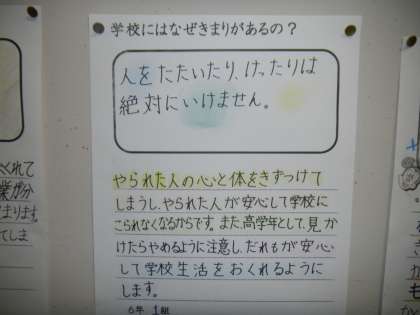 学校にはなぜきまりがあるの？
人をたたいたり、けったりは
絶対にいけません。
やられた人の心と体をきずつけて
しまうし、やられた人が安心して学校に
こられなくなるからです。また、高学年として、見か
けたらやめるように注意し、だれもが安心
して学校生活をおくれるように
します。
6年 1組